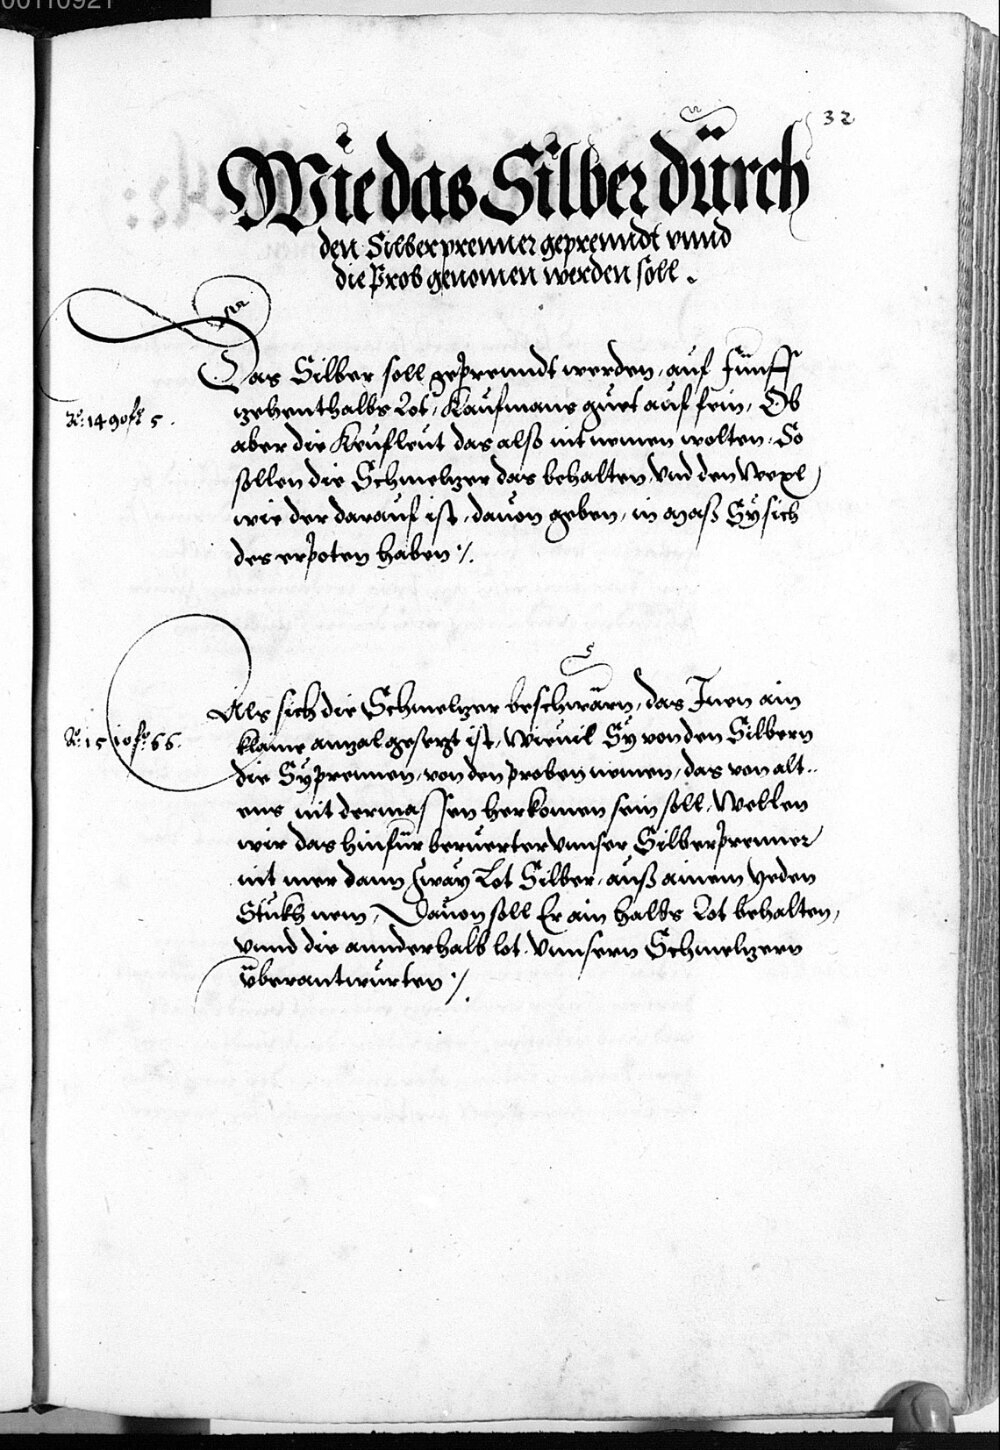 00110921
32
Wie das Silber durch
den Silberprenner geprenndt vnnd
die Prob genomen werden soll.
Das Silber soll geprenndt werden, auf Fünff
zehenthalbs Lot, Kaufmans guet auf fein, Ob
A: 1490 fo: 5.
aber die Keufleut das also nit nemen wolten. So
sollen die Schmeltzer das behalten, vnd den Wexl
wie der darauf ist, dauon geben, in maß Sy sich
des erpoten haben :/.
Als sich die Schmeltzer beschwärn, das Inen ain
A: 1510 fo: 66.
klaine anzal gesetzt ist, Wieuil Sy von den Silbern
die Sy prennen, von den proben nemen, das von alt..
ens nit dermassen herkomen sein soll, Wellen
wir das hinfür berüerter vnnser Silberprenner
nit mer dann Zway Lot Silber, auß ainem yeden
Stukh nem, Dauon soll Er ain halbs Lot behalten,
vnnd die annderhalb lot vnnsern Schmeltzern
überantwurten :/.